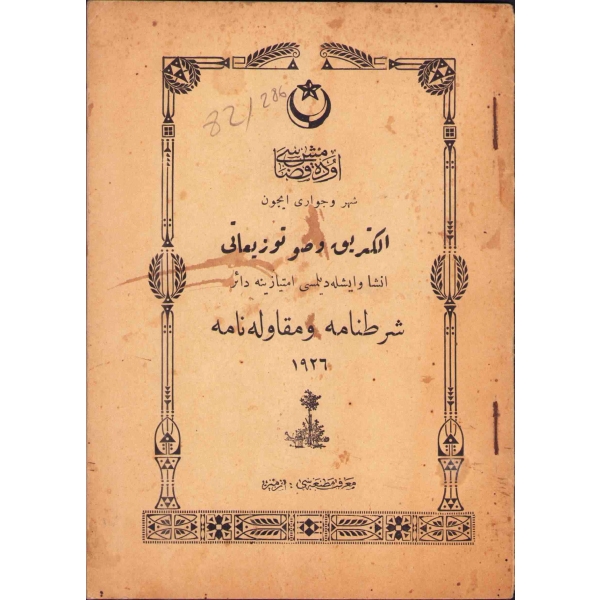 82/286
اوده‌مش قضاسنه
شهر و جواری ایچون
الکتریق وصو توزیعاتی
انشا وایشله‌دیلمسی امتیازینه دائر
شرطنامه و مقاوله‌نامه
١٩٢٦
معارف مطبعه‌سی : ازمیر